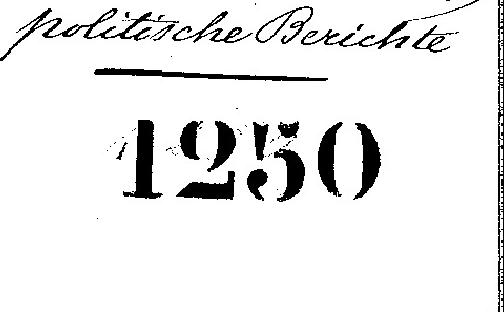 politische Berichte
1250